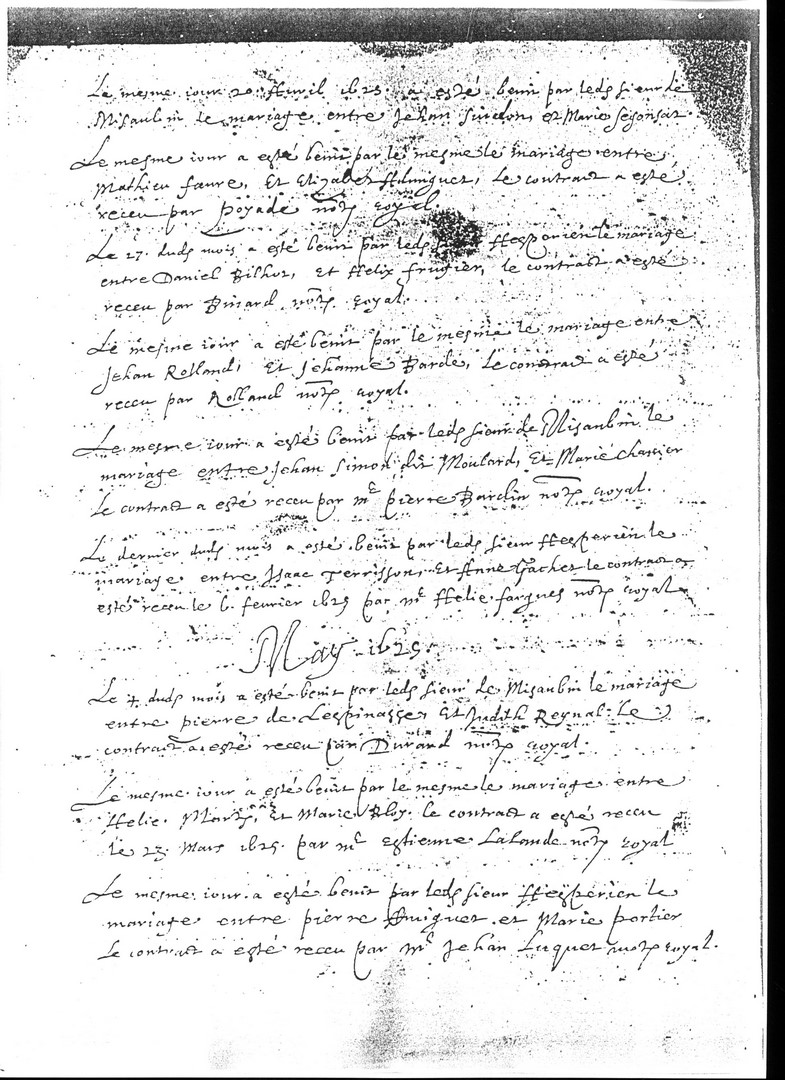 Le mesme iour 20 Auril 1625 a esté benit par leds sieur de
Misaubin le mariage entre Jehan et Marie Segonsat
Le mesme iour a esté benit par le mesme le mariage entre
Mathieu faure, Et Elizabet le contract a esté
receu par Poyade notre royal.
Le 27. duds mois a esté benit par leds sieur Hesperien le mariage
entre Daniel Bilhot, et Helix frugier, le contract a esté
receu par Binard notre royal.
Le mesme iour a esté benit par le mesme le mariage entre
Jehan Rolland, Et Jehanne Barde, Le contract a esté
receu par Rolland notre royal.
Le mesme iour a esté benit par leds sieur de Misaubin le
mariage entre Jehan Simon dit Moulard, Et Marie Charrier
Le contract a esté receu par me pierre Bardin notre royal.
Le dernier duds mois a esté benit par leds sieur Hesperien le
mariage entre Isaac Terrisson, Et Anne Gachet le contract a
esté receu le 6. feurier 1625 par me Helie fargues notre royal
May 1625.
Le 4 duds mois a esté benit par leds sieur de Misaubin le mariage
entre pierre de Lespinasse, Et Judith Reynal. Le
contract a esté receu par Durand notre royal.
Le mesme iour a esté benit par le mesme le mariage entre
Helie Martin, Et Marie Bloy. le contract a esté receu
le 23 Mars 1625. par me Estienne Lalande notre royal
Le mesme iour a esté benit par leds sieur Hesperien le
mariage entre pierre et Marie portier
Le contract a esté receu par Me Jehan Luquet notre royal.